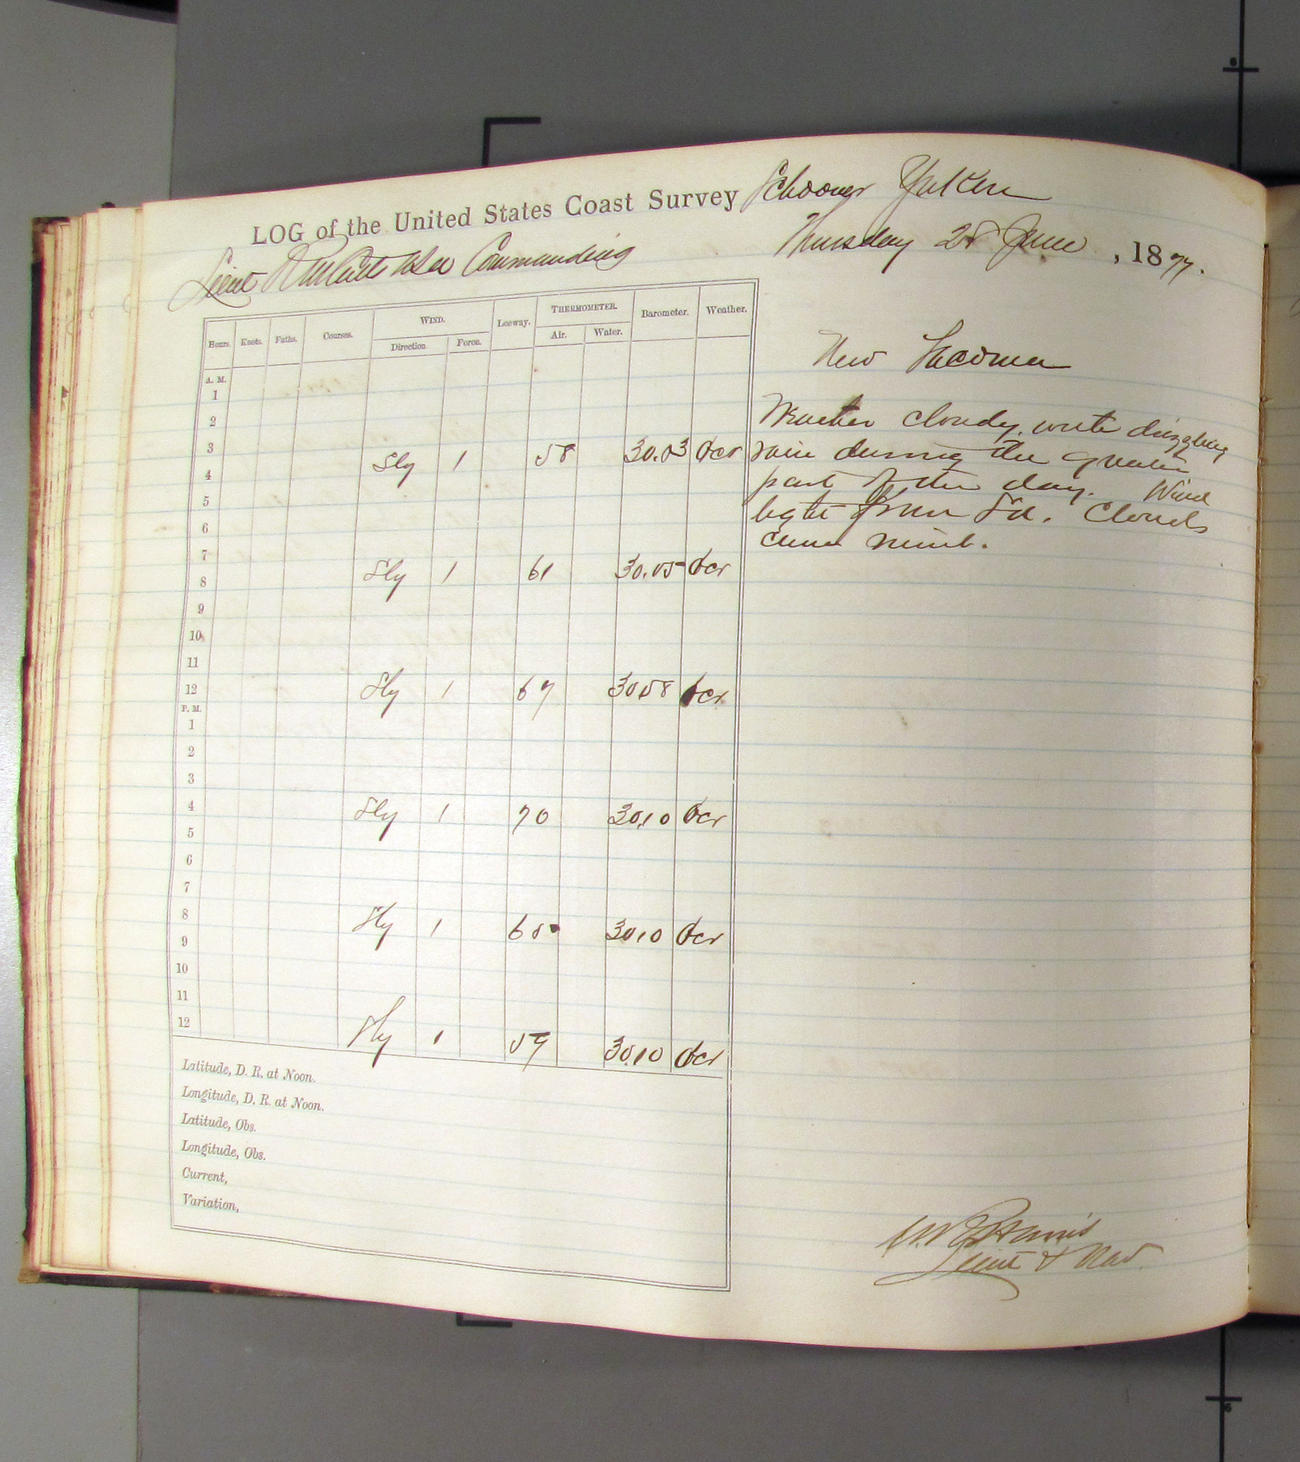 LOG of the United States Coast Survey Schooner Yukon
Thursday 28 June, 1877.
Lieut Commanding
Hours. Knots. Faths. Courses. WIND. Leeway. THERMOMETER. Barometer. Weather.
Direction. Force. Air. Water.
A. M.
1
2
3
4 Sly 1 58 30.03 Ocr
5
6
7
8 Sly 1 61 30.05 Ocr
9
10
11
12 Sly 1 67 30.08 Ocr
P. M.
1
2
3
4 Sly 1 70 30.10 Ocr
5
6
7
8 Sly 1 65 30.10 Ocr
9
10
11
12 Sly 1 59 30.10 Ocr
Latitude, D. R. at Noon.
Longitude, D. R. at Noon.
Latitude, Obs.
Longitude, Obs.
Current,
Variation,
New Tacoma
Weather cloudy, with drizzling
rain during the greater
part of the day. Wind
light from Sd. Clouds
cum nimb.
Harris
Lieut & Nav.